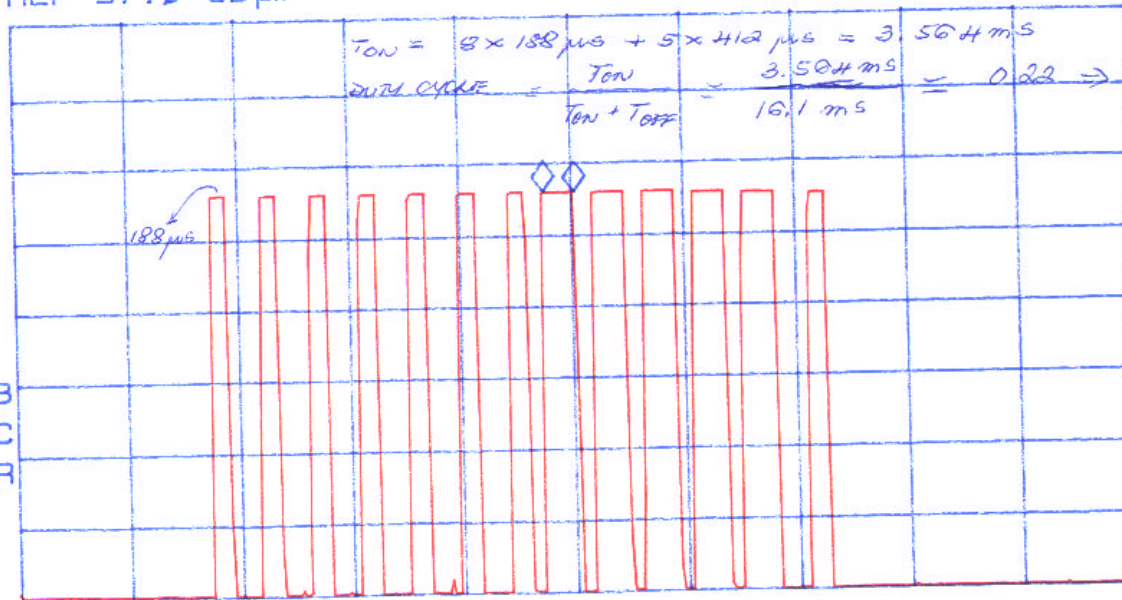 TON = 8 x 188 µs + 5 x 412 µs = 3.564 ms
DUTY CYCLE = TON / TON + TOFF = 3.564 ms / 16.1 ms = 0.22 ⇒
188 µs